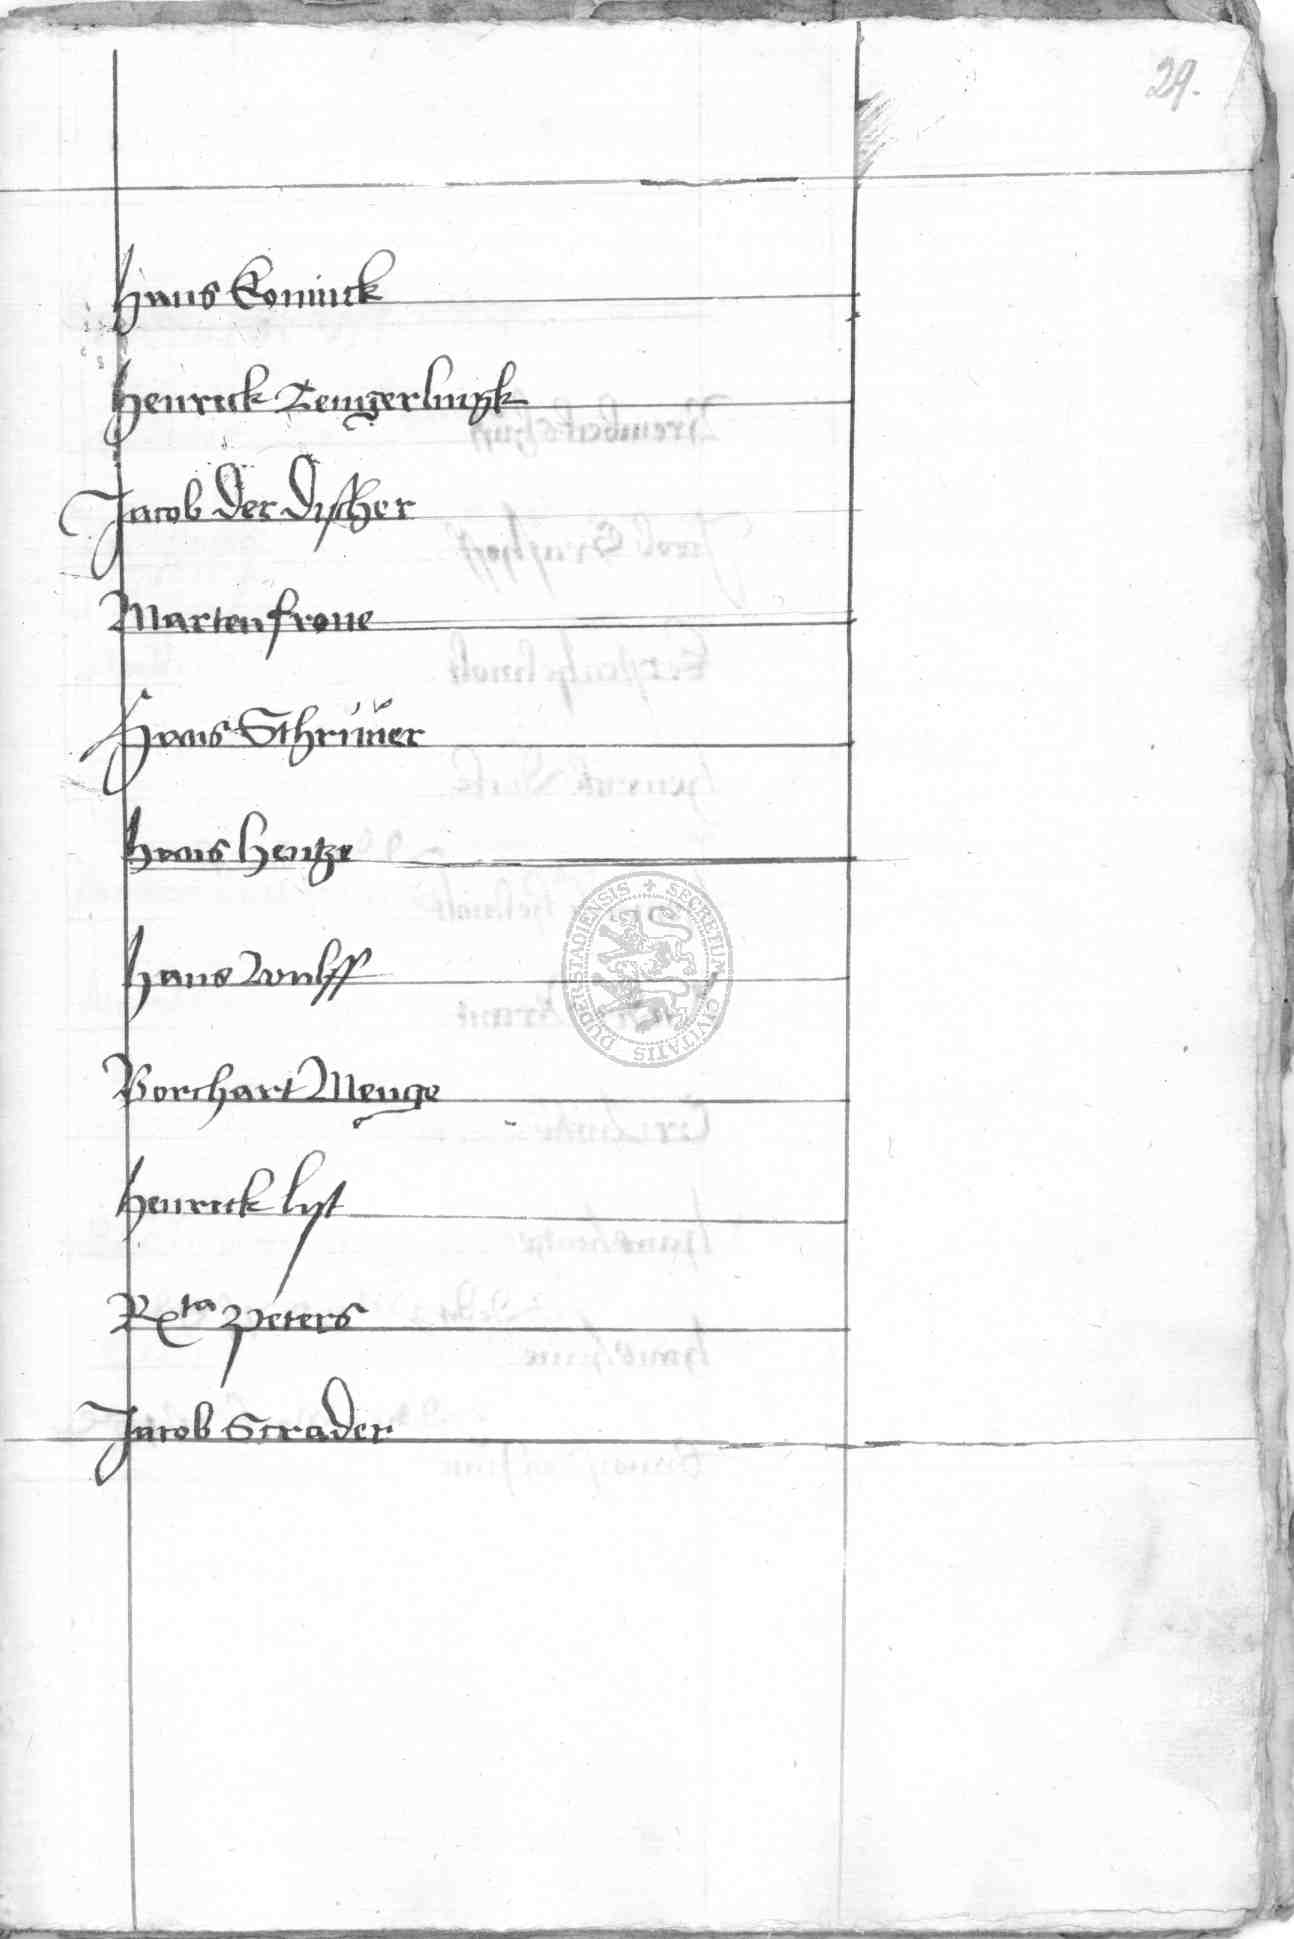 29.
Hans Koninck
Henrick
Jacob der discher
Marten frone
Hans
Hans Hentze
Hans Wulff
Borchart Menge
Henrick lyst
Rta Peters
Jacob Strader
SECRETUM CIVITATIS DUDERSTADIENSIS